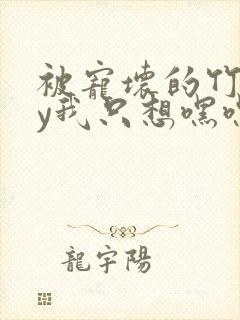 被寵壞的竹
y我只想嘿
龍宇陽